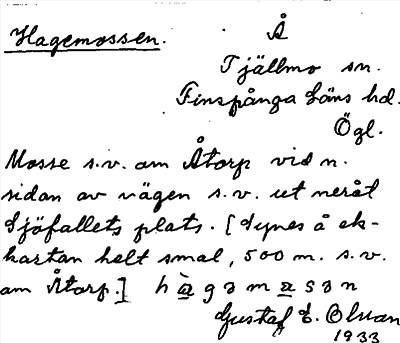 Hagemossen.
Å
Tjällmo sn.
Finspånga läns hd.
Ögl.
Mosse s.v. om Åtorp vid n.
sidan av vägen s.v. ut neråt
Sjöfallets plats. [Synes å ek-
kartan helt smal, 500 m. s.v.
om Åtorp.] hàgəmasən
Gustaf E. Olsson
1933